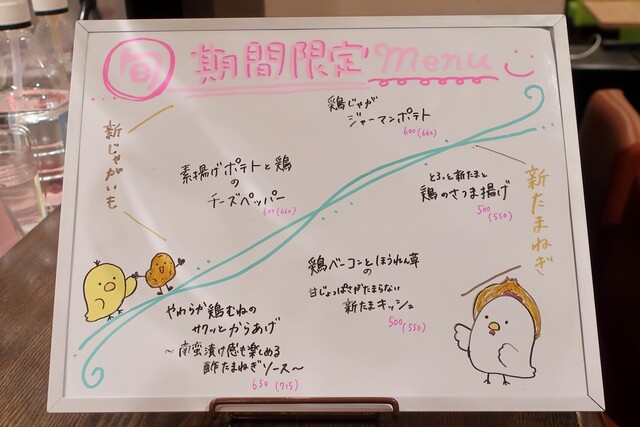 旬 期間限定 menu
新じゃがいも
鶏じゃが
ジャーマンポテト
600 (660)
素揚げポテトと鶏
の
チーズペッパー
600 (660)
新たまねぎ
とろっと新たまと
鶏のさつま揚げ
500
(550)
鶏ベーコンとほうれん草
の
甘じょっぱさがたまらない
新たまキッシュ
500 (550)
やわらか鶏むねの
サクッとからあげ
〜南蛮漬け感も楽しめる
酢たまねぎソース〜
650 (715)